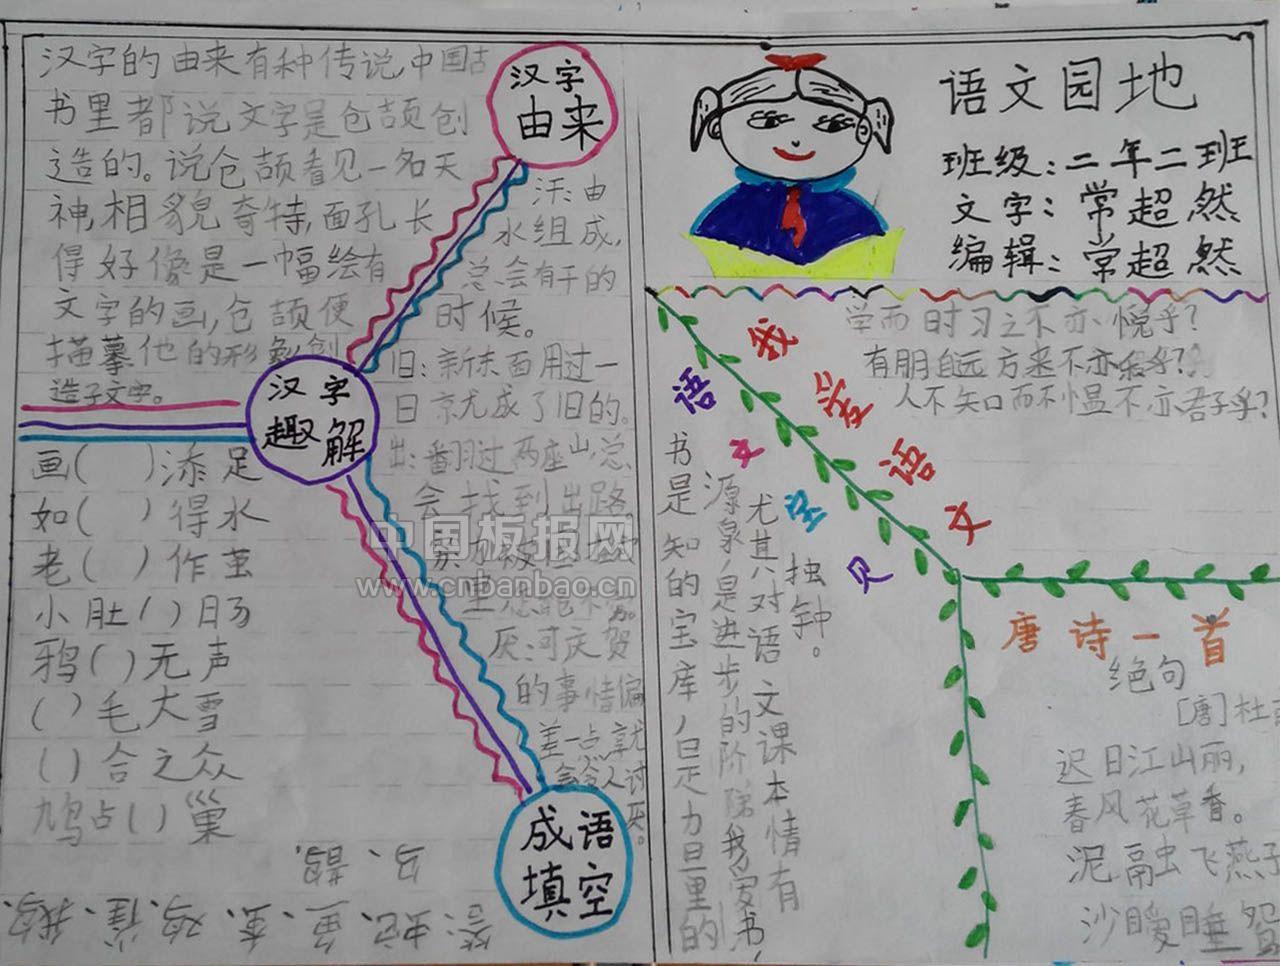 汉字的由来有种传说,中国古
书里都说文字是仓颉创
造的。说仓颉看见一名天
神,相貌奇特,面孔长
得好像是一幅绘有
文字的画,仓颉便
描摹他的形象创
造子文字。
汉字
由来
汉字
趣解
成语
填空
由
水组成,
总会有干的
时候。
旧:新东西用过一
日就成了旧的。
出:翻过两座山,总
会找到出路。
厌:可庆贺
的事情偏
差一点就
会令人讨
厌。
画( )添足
如( )得水
老( )作茧
小肚( )肠
鸦( )无声
( )毛大雪
( )合之众
鸠占( )巢
答:蛇、鱼、蚕、鸡、雀、鹅、
乌、鹊.
中国板报网
www.cnbanbao.cn
语文园地
班级:二年二班
文字:常超然
编辑:常超然
我爱语文
语文宝贝
学而时习之不亦悦乎?
有朋自远方来不亦乐乎?
人不知而不愠不亦君子乎?
书是知的宝库,是力量的
源泉,是进步的阶梯我爱书,
尤其对语文课本情有
独钟。
唐诗一首
绝句
[唐]杜
迟日江山丽,
春风花草香。
泥融飞燕子
沙暖睡鸳